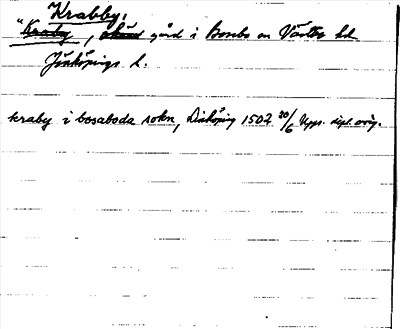 Krabby.
"Kraby, okänd gård i Bosebo sn Västbo hd
Jönköpings l.
kraby i bosaboda sokn, Linköping 1502 20/6 Upps. dipl. orig.